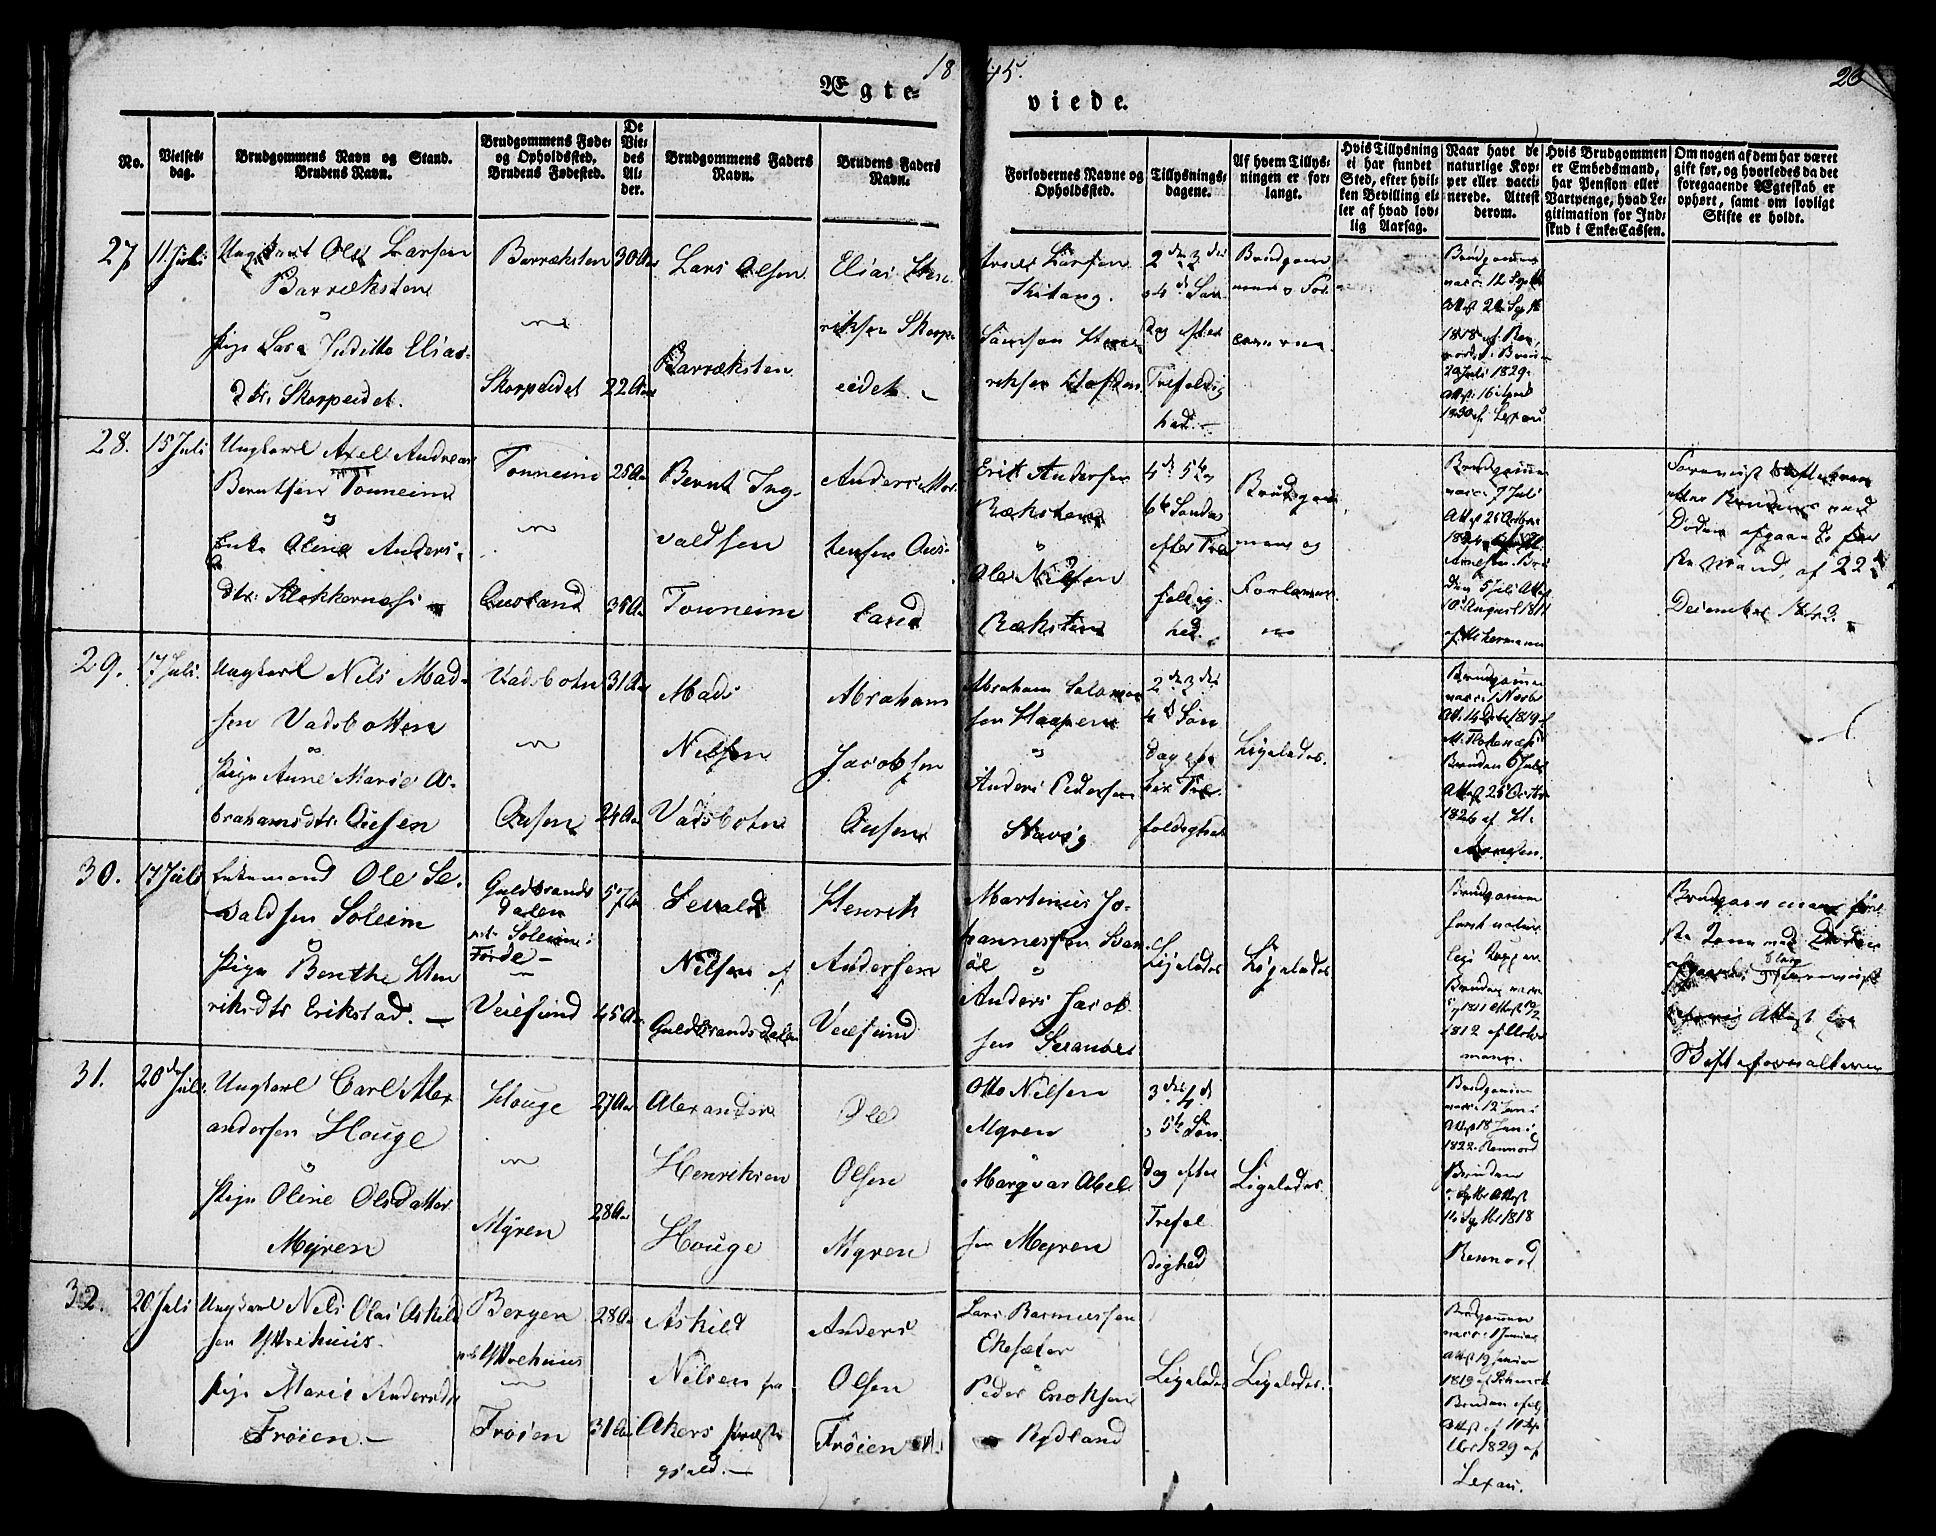 18
45.
26
Ægte-
viede.
No.
Vielses-
dag.
Brudgommens Navn og Stand.
Brudens Navn.
Brudgommens Føde-
og Opholdssted,
Brudens Fødested.
De
Vie-
des
Al-
der.
Brudgommens Faders
Navn.
Brudens Faders
Navn.
Forlovernes Navne og
Opholdssted.
Tillysnings-
dagene.
Af hvem Tillys-
ningen er for-
langt.
Hvis Tillysning
ei har fundet
Sted, efter hvil-
ken Bevilling el-
ler af hvad lov-
lig Aarsag.
Naar havt de
naturlige Kop-
per eller vacci-
nerede. Attest
derom.
Hvis Brudgommen
er Embedsmand,
har Pension eller
Vartpenge, hvad Le-
gitimation for Ind-
skud i Enke-Cassen.
Om nogen af dem har været
gift før, og hvorledes da det
foregaaende Ægteskab er
ophørt, samt om lovligt
Skifte er holdt.
27
11 Juli
Ungkarl Ole Larsen
Barræksten
Pige Sara Juditta Elias-
dtr. Skorpeidet.
Barræksten
Skorpeidet
30 Aar
22 Aar
Lars Olsen
Barræksten
Elias Hen-
riksen Skorpe-
eidet
Larsen
Samson Hen-
riksen
2den 3die
4de Søn-
dag efter
Trefoldig-
hed.
Brudgom-
men og For-
loverne.
Brudgommen
vacc. 12 Septb
1818 af Ren-
nord. Bruden
29 Juli 1829.
Attest 16 April
1830 af Lexau
28.
15 Juli
Ungkarl Axel Andreas
Berntsen Tonneim
og
Enke Oline Anders-
dtr. Klokkernæs
Tonneim
Ausland
25 Aar
35 Aar
Bernt Ing-
valdsen
Tonneim
Anders Mor-
tensen Aus-
land
Erik Andersen
Ræksten
Ole Nilsen
Ræksten
4de 5te
6te Søndag
efter Tre-
foldig-
hed.
Brudgom-
men og
Forloverne
Brudgommen
vacc. 7 Juli
den 5 Juli Attest
10 August 1811
af Mehermann
efter Brudens ved
Døden afgaaede før-
ste Mand, af 22de
December 1843.
29.
17 Juli.
Ungkarl Nils Mad-
sen Vadsbotten
og
Pige Anne Marie A-
brahamsdtr. Ousen
Vadsbotn
Ousen
31 Aar
24 Aar
Mads
Nilsen
Vadsbotn
Abraham
Jacobsen
Ousen
Abraham Salomon-
sen Haapen
og
Anders Pedersen
Stavig
2den 3die
4de Søn-
dag ef-
ter Tre-
foldighed
Ligeledes.
Brudgommen
vacc. 1 Novb
Bruden 6 Juli
Attest 25 Octbr
1826 af H.
30.
17 Juli
Enkemand Ole Se-
valdsen Soleim
og
Pige Benthe Hen-
riksdtr Erikstad.
Guldbrands-
dalen
Soleim i
Førde
Veiesund
57 Aar
45 Aar
Sevald
Nilsen af
Guldbrandsdalen
Henrik
Andersen
Veiesund
Martinus Jo-
hannessen Svan-
øe
Anders Jacob-
sen
Ligeledes
Ligeledes
Brudgommen
havt natur-
lige Kopper
Bruden vacc.
1811 Attest
1812 af Meher-
mann.
Brudgommens før-
ste Kone ved Døden
Attest fra
Skifteforvalteren
31.
20de Juli
Ungkarl Carl Alex-
andersen Houge
og
Pige Oline Olsdatter
Myren
Houge
Myren
27 Aar
28 Aar
Alexander
Henriksen
Houge
Ole
Olsen
Myren
Otto Nilsen
Myren
Margvar Abel-
sen Myren
3die 4de
5te Søn-
dag efter
Trefol-
dighed
Ligeledes.
Brudgommen
vacc. 12 Juni
Attest 18 Juni
1822. Rennord
Bruden
Septbr Attest
14 Septbr 1818
Rennord
32.
20 Juli
Ungkarl Nils Olai Askild-
sen Yttrehuus.
Pige Marie Andersdtr
Frøien.
Bergen
Yttrehuus
Frøien
28 Aar
31 Aar
Askild
Nilsen fra
Akers Præste-
gjæld.
Anders
Olsen
Frøien
Lars Rasmussen
Ekesæter
Peder Enoksen
Rydland
Ligeledes
Ligeledes.
Brudgommen
vacc. Januar
Attest 19 Januar
1819
Bruden
Attest af 11 Sep-
tbr 1829 af
Lexau.